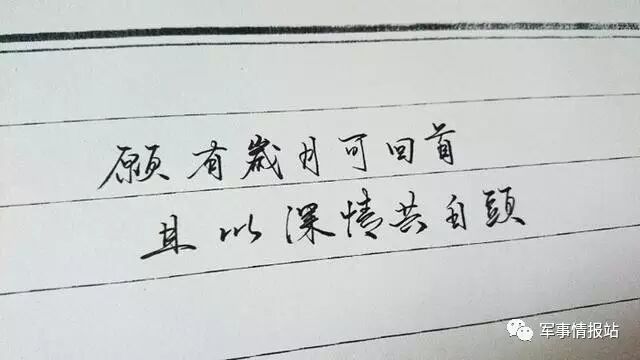 願有歲月可回首
且以深情共白頭
军事情报站